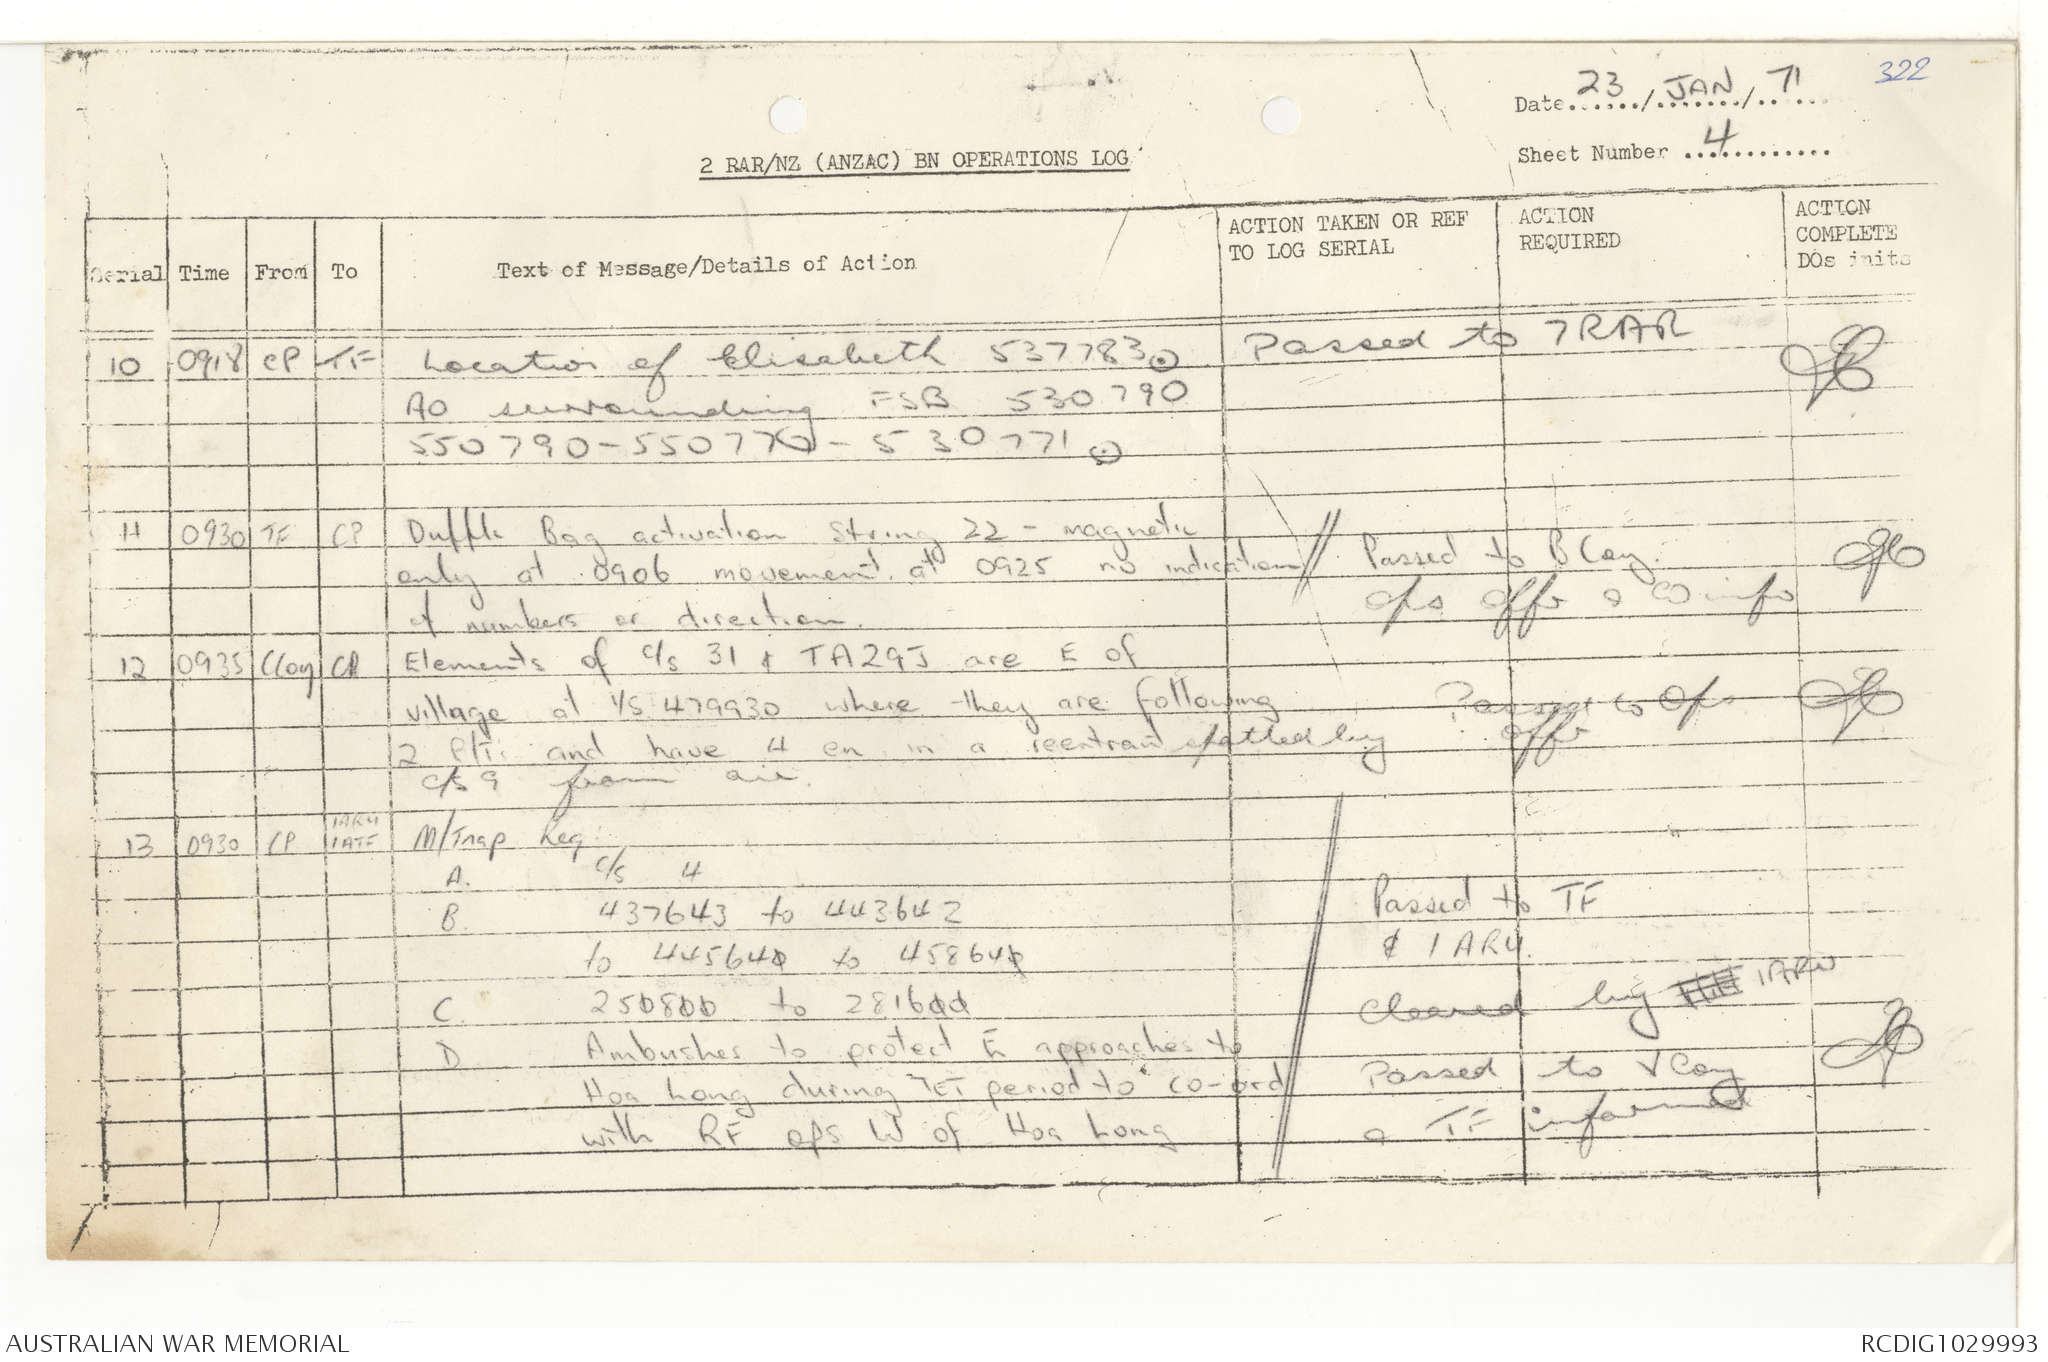 322
Date 23 / JAN / 71
Sheet Number 4
2 RAR/NZ (ANZAC) BN OPERATIONS LOG
Serial Time From To Text of Message/Details of Action ACTION TAKEN OR REF TO LOG SERIAL ACTION REQUIRED ACTION COMPLETE DOs inits
10 0918 CP TF Location of Elisabeth 537783 Passed to 7RAR
AO surrounding FSB 530790
550790-550770-530771
11 0930 TF CP Duffle Bag activation String 22 - magnetic
only at 0906 movement at 0925 no indication Passed to B Coy.
of numbers or direction. Ops Offr & CO info
12 0935 C Coy CP Elements of c/s 31 & TA29J are E of
village at 479930 where they are following Passed to Ops
2 and have 4 en in a reentrant spotted by Offr
c/s 9 from air.
13 0930 CP 1ARU 1ATF M/Trap Req:
A. c/s 4
B. 437643 to 443642 Passed to TF
to 445640 to 458640 & 1 ARU.
C. 250800 to 281600 Cleared by 1ARU
D Ambushes to protect E approaches to
Hoa Long during TET period to co-ord Passed to V Coy
with RF ops W of Hoa Long & TF informed
AUSTRALIAN WAR MEMORIAL RCDIG1029993